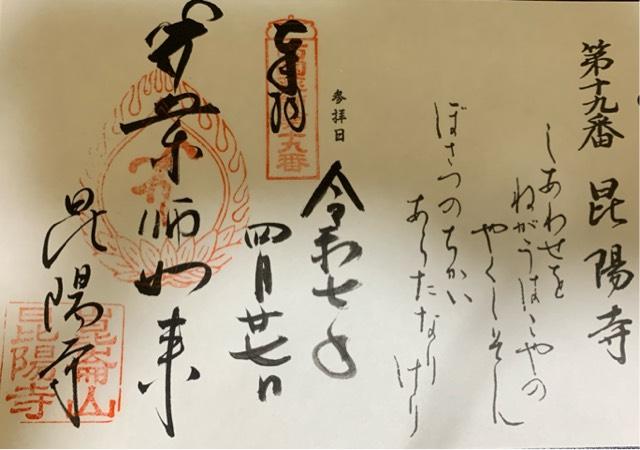 第十九番 昆陽寺
しあわせを
ねがうはこやの
やくしそん
ぼさつのちかい
あらたなりけり
参拝日
令和七年
四月廿七日
奉拝
薬師如来
昆陽寺
崑崙山
昆陽寺